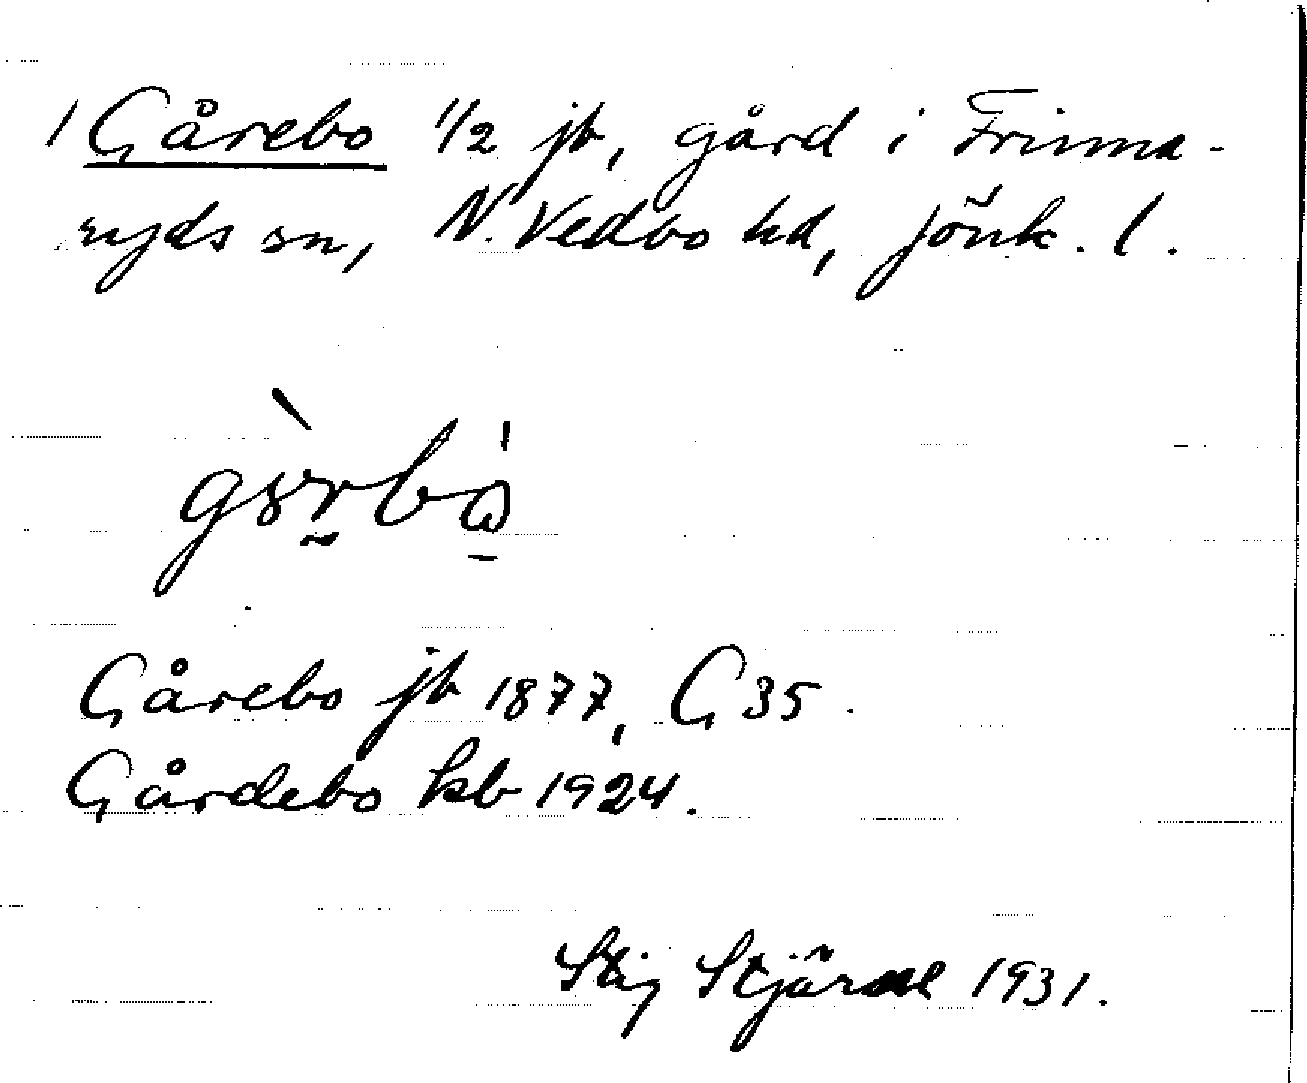 1 Gårebo 1/2 jb, gård i Frinna-
ryds sn, N. Vedbo hd, Jönk. l.
Gårebo jb 1877, G 35.
Gårdebo kb 1924.
Stig Stjärne 1931.